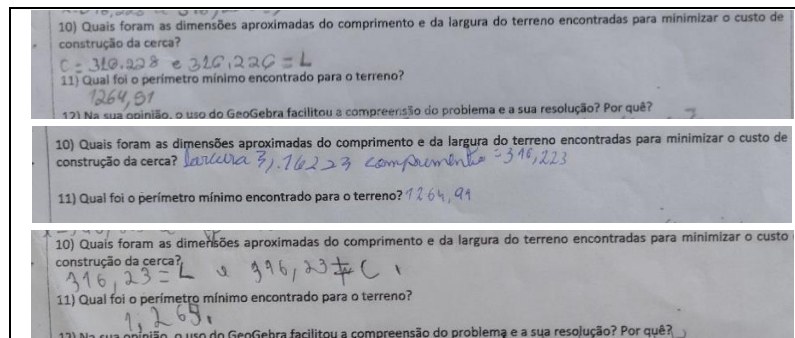 10) Quais foram as dimensões aproximadas do comprimento e da largura do terreno encontradas para minimizar o custo de
construção da cerca?
C = 316.228 e 316,226 = L
11) Qual foi o perímetro mínimo encontrado para o terreno?
1264,91
12) Na sua opinião, o uso do GeoGebra facilitou a compreensão do problema e a sua resolução? Por quê?
10) Quais foram as dimensões aproximadas do comprimento e da largura do terreno encontradas para minimizar o custo de
construção da cerca? largura 3,.16223 comprimento = 316,223
11) Qual foi o perímetro mínimo encontrado para o terreno? 1264,91
10) Quais foram as dimensões aproximadas do comprimento e da largura do terreno encontradas para minimizar o custo
construção da cerca?
316,23 = L e 316,23 = C
11) Qual foi o perímetro mínimo encontrado para o terreno?
1,265.
12) Na sua opinião, o uso do GeoGebra facilitou a compreensão do problema e a sua resolução? Por quê?